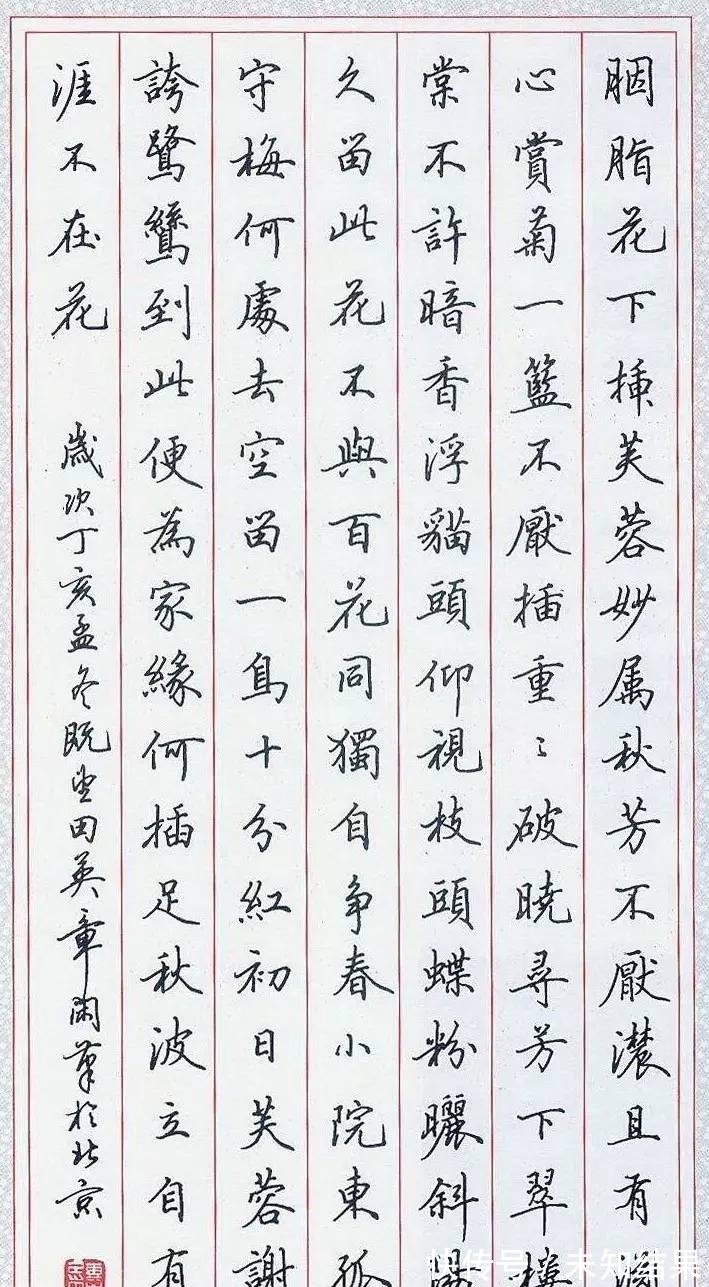 胭脂花下插芙蓉妙属秋芳不厭濃且有
心賞菊一籃不厭插重〻破曉尋芳下翠
棠不許暗香浮貓頭仰視枝頭蝶粉曬斜
久留此花不與百花同獨自争春小院東孤
守梅何處去空留一鳥十分紅初日芙蓉謝
誇鷺鷥到此便為家緣何插足秋波立自有
涯不在花
歲次丁亥孟冬既望田英章閑筆於北京
快传号/未知结果